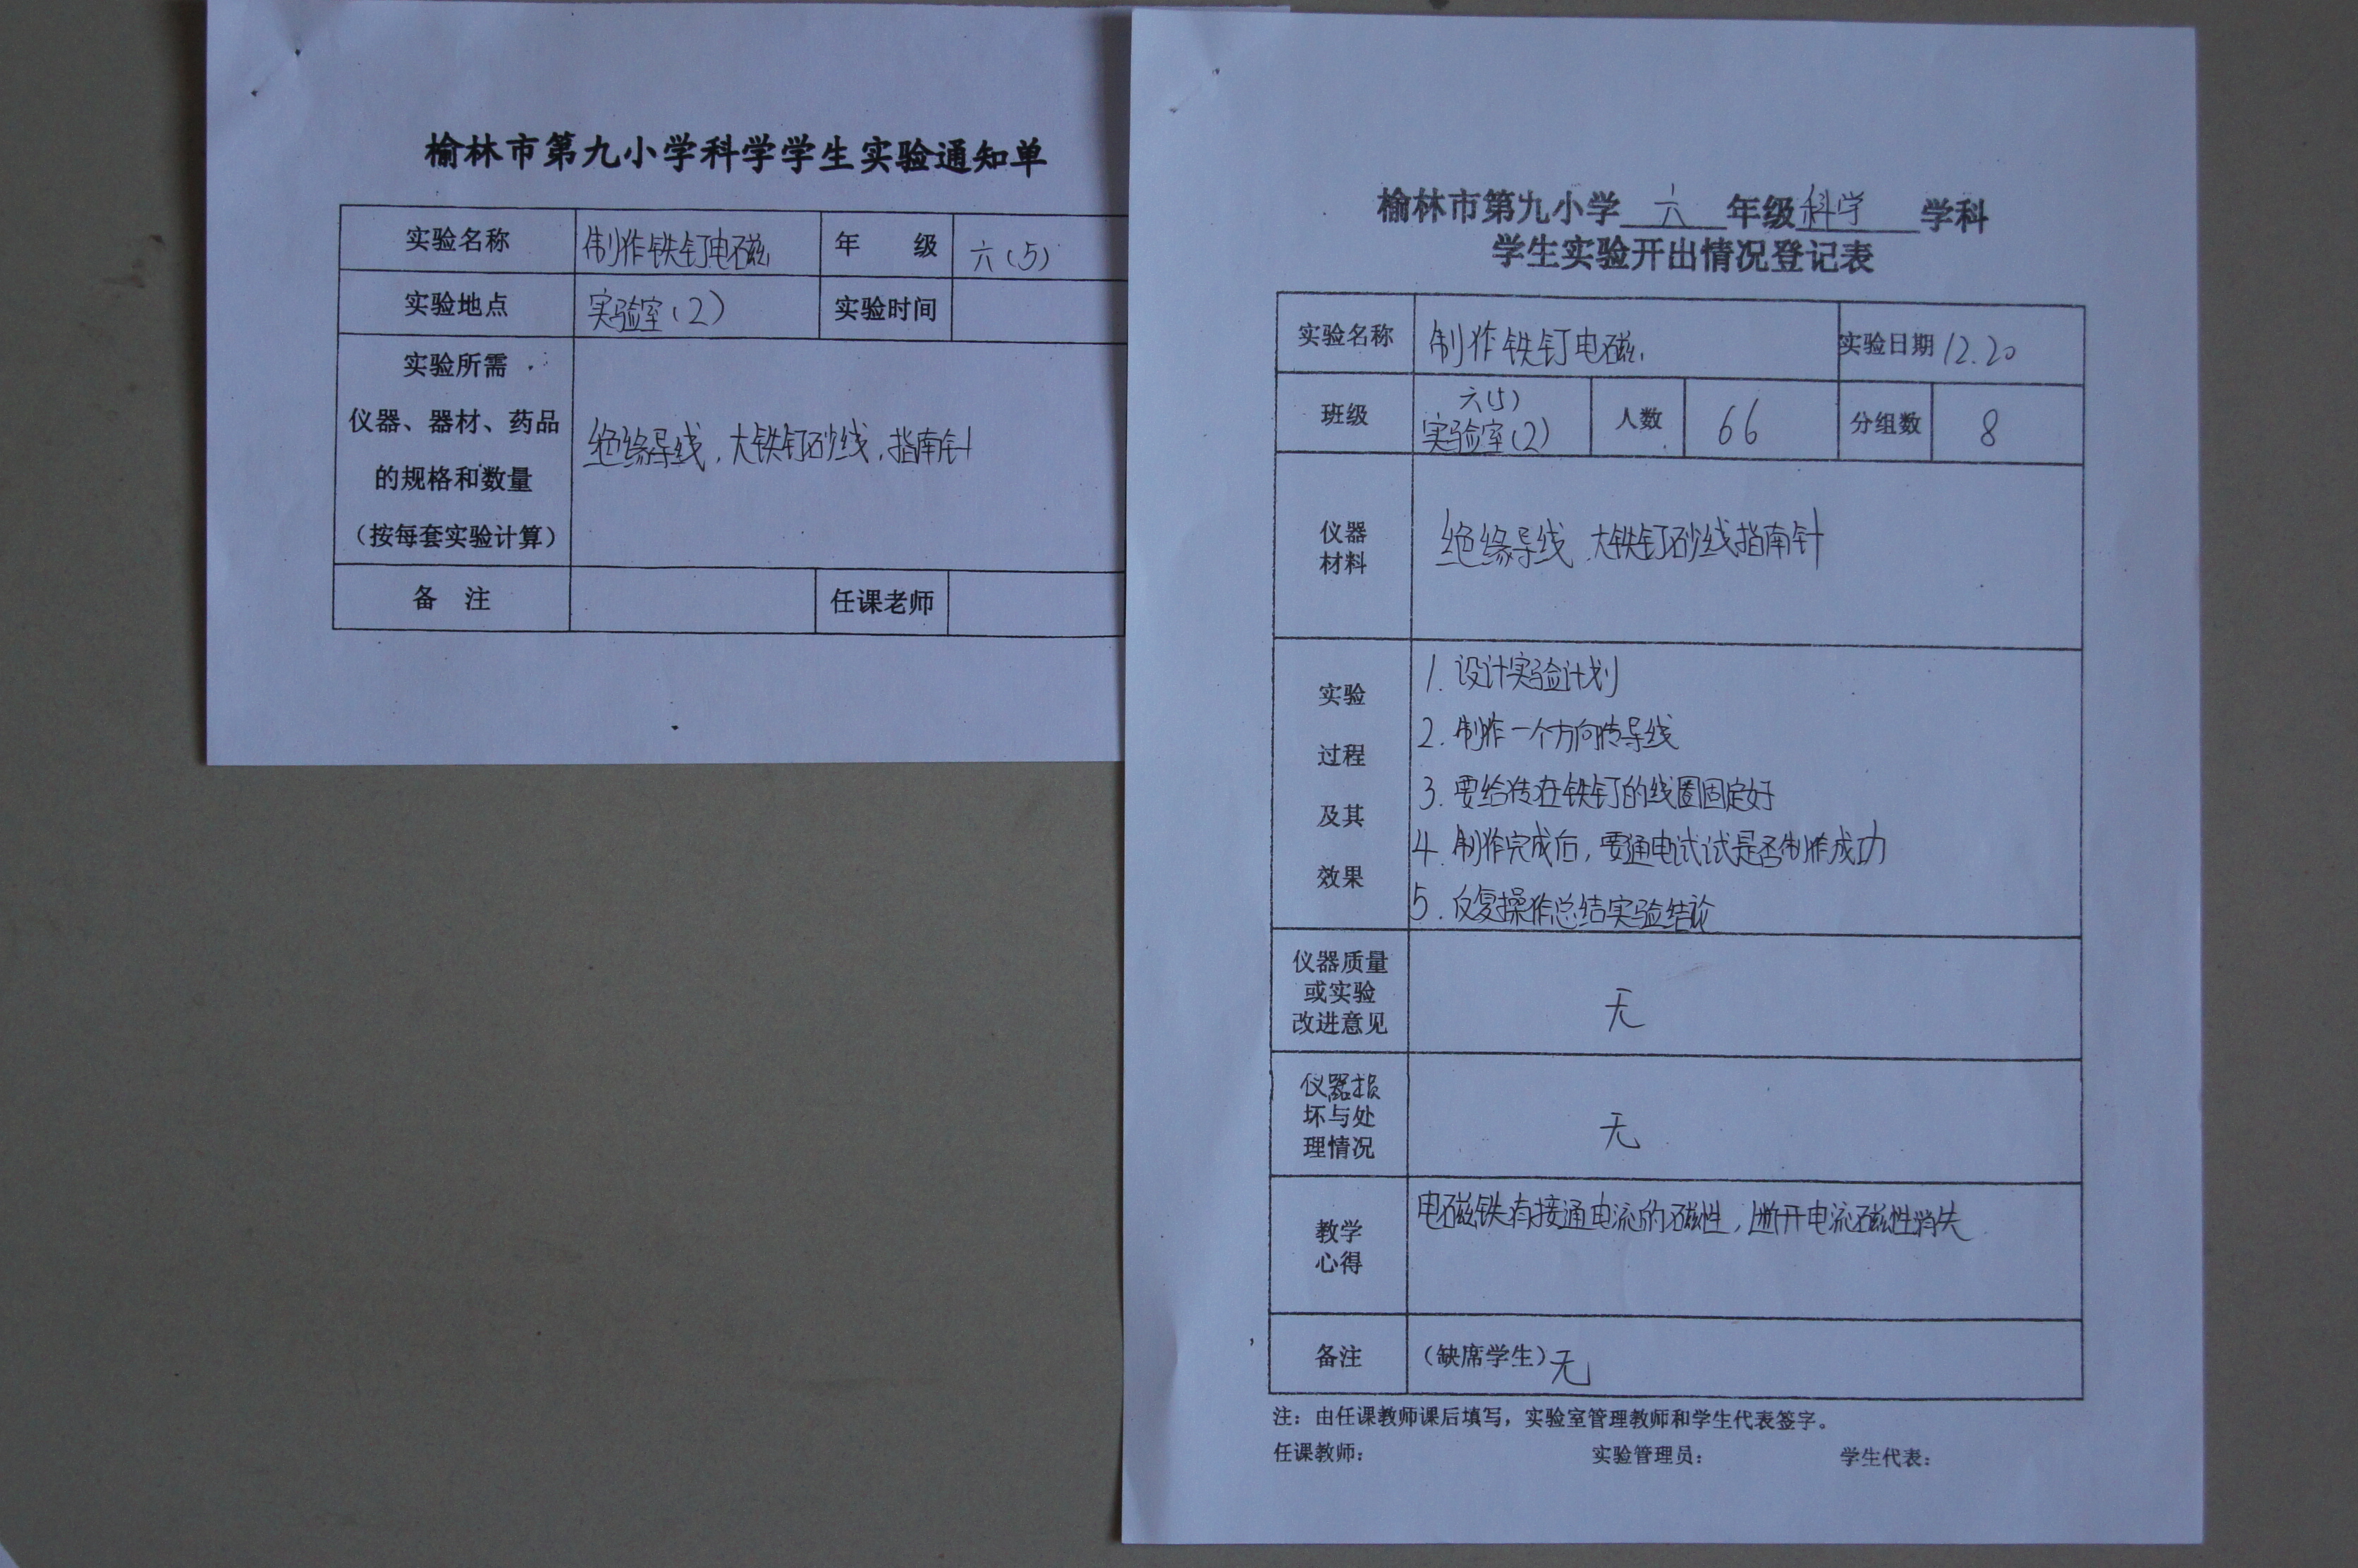 榆林市第九小学科学学生实验通知单
实验名称 制作铁钉电磁 年 级 六(5)
实验地点 实验室(2) 实验时间
实验所需
仪器、器材、药品
的规格和数量
(按每套实验计算)
绝缘导线,大铁钉砂线,指南针
备 注 任课老师
榆林市第九小学 六 年级 科学 学科
学生实验开出情况登记表
实验名称 制作铁钉电磁 实验日期 12.20
班级 六(5) 实验室(2) 人数 66 分组数 8
仪器
材料
绝缘导线、大铁钉砂线指南针
实验
过程
及其
效果
1. 设计实验计划
2. 制作一个方向 导线
3. 要给 在铁钉的线圈固定好
4. 制作完成后,要通电试试是否制作成功
5. 反复操作总结实验结论
仪器质量
或实验
改进意见
无
仪器损
坏与处
理情况
无
教学
心得
电磁铁有接通电流的磁性,断开电流磁性消失
备注 (缺席学生)无
注:由任课教师课后填写,实验室管理教师和学生代表签字。
任课教师: 实验管理员: 学生代表: